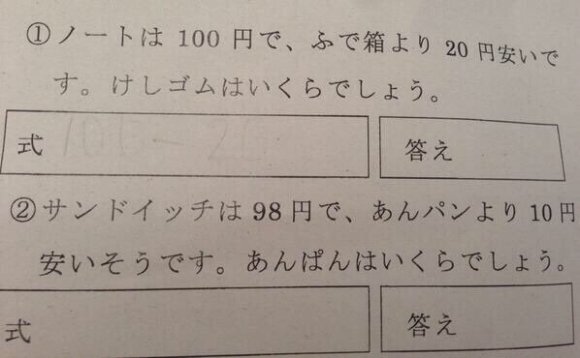 ①ノートは 100 円で、ふで箱より 20 円安いで
す。けしゴムはいくらでしょう。
式
答え
②サンドイッチは98円で、あんパンより10円
安いそうです。あんぱんはいくらでしょう。
式
答え